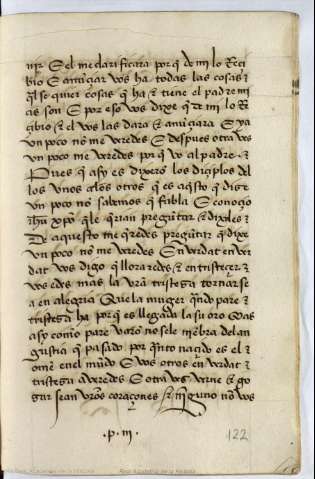 nir E el me clarificara por q̃ de mi lo Reci
bio E anũciar vos ha todas las cosas &
q̃l se quier cosas q̃ ha & tiene el padre mi
as son E por eso vos dixe q̃ de mi lo Re
cibio & el vos las dara & anũciara E ya
vn poco no me veredes E despues otra vez
vn poco me veredes por q̃ vo al padre. &
Pues q̃ asy es dixerõ los diçiplos del
los vnos a los otros q̃ es aq̃sto q̃ dize
vn poco no sabemos q̃ fabla E conoçio
ihũ xpõ q̃ le q̃rian pregũtar & dixoles &
De aquesto me q̃redes pregũtar q̃ dixe
vn poco no me veredes En verdat en ver
dat vos digo q̃ lloraredes & entristeçer &
vos edes mas la vr̃a tristeza tornar se
a en alegria Que la muger q̃ndo pare &
tristeza ha por q̃ es llegada la su ora Mas
asy como pare varõ no sele miẽbra del an
gustia q̃ pasado por q̃nto naçido es el &
ome en el mũdo E vos otros en verdat &
tristeza averedes E otra vez verne & go
zar sean vr̃os coraçones & ninguno no vos
.p. iii.
122
Real Academia de la Historia